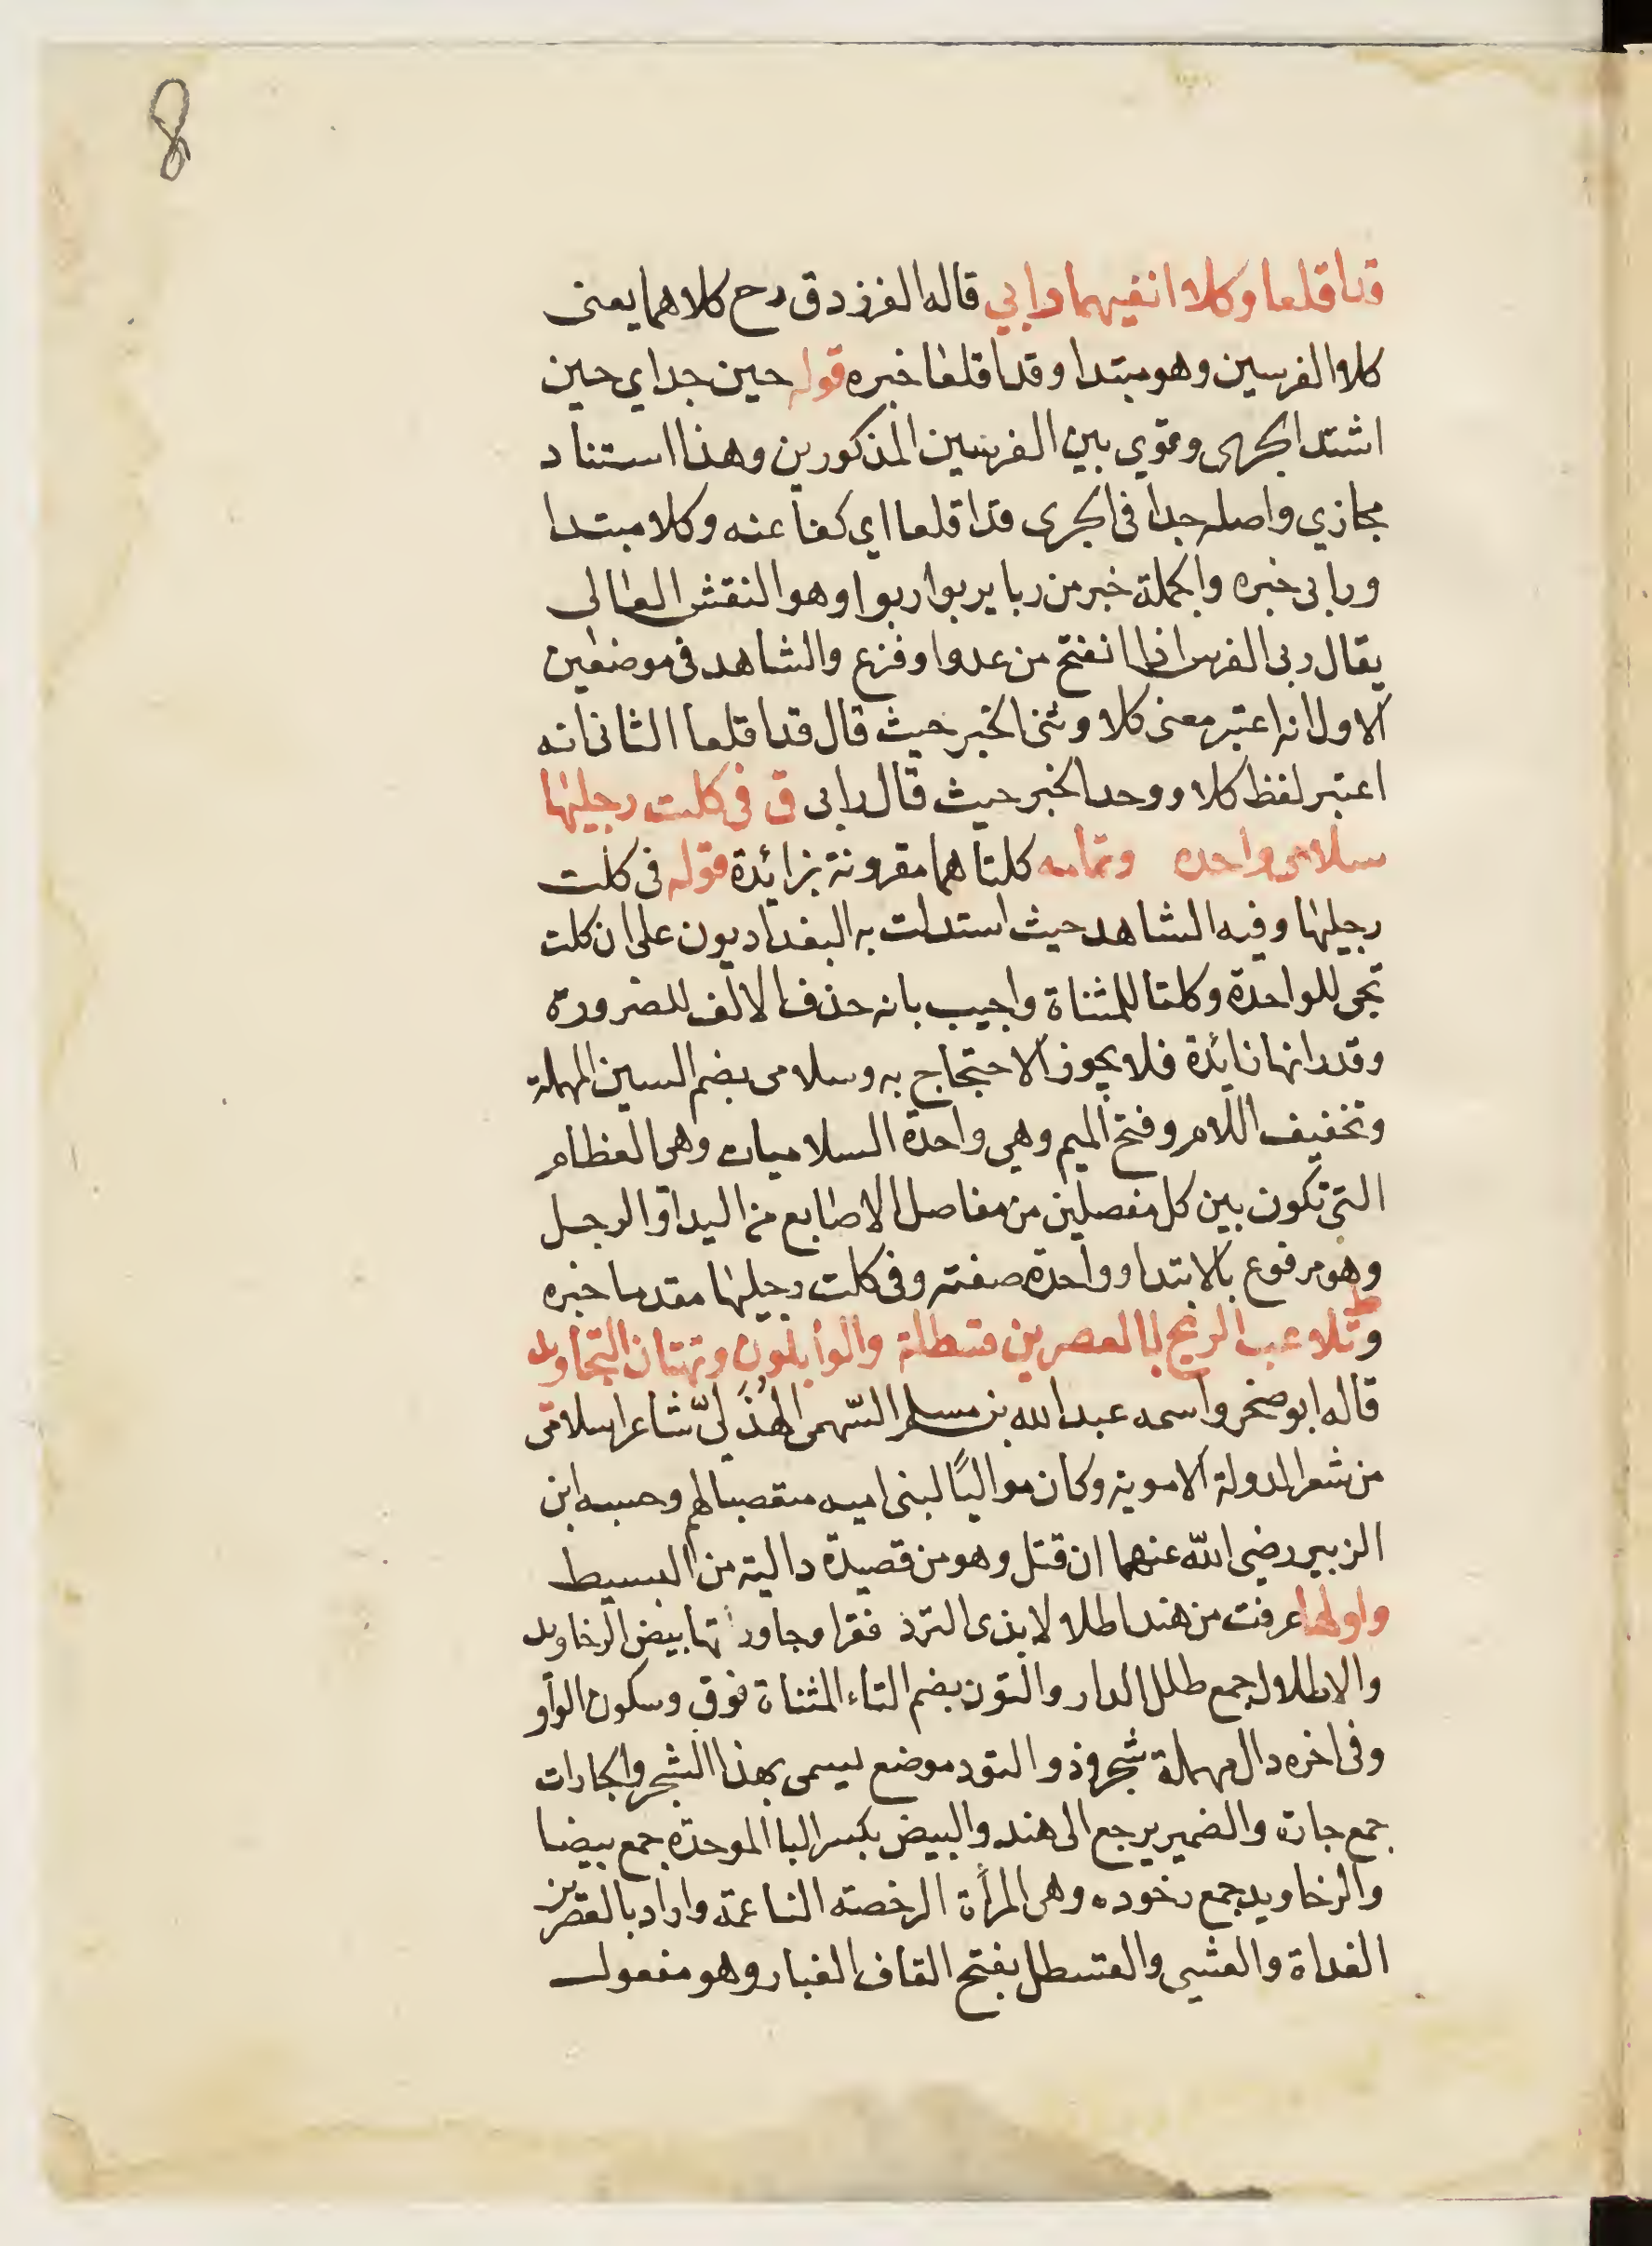 8
قد اقلعا وكلا انفيهما رابي قاله الفرزدق رح كلاهما يعني
كلا الفرسين وهو مبتدا وقد اقلعا خبره قوله حين جد اي حين
اشتد الجرى وقوي بين الفرسين المذكورين وهذا استناد
مجازي واصله جدا في الجرى قد اقلعا اي كفا عنه وكلا مبتدا
ورابى خبره والجملة خبر من ربا يربوا ربوا وهو النفش العالى
يقال ربى الفرس اذا انفتح من عدو او فزع والشاهد فى موضعين
الاول انه اعتبر معنى كلا وثنى الخبر حيث قال قد اقلعا الثانى انه
اعتبر لفظ كلا ووحد الخبر حيث قال رابى ق فى كلت رجليها
سلامى واحده وتمامه كلتاهما مقرونة بزائدة قوله فى كلت
رجليها وفيه الشاهد حيث استدلت به البغداديون على ان كلت
تجى للواحدة وكلتا للمثناة واجيب بانه حذف الالف للضرورة
وقدر انها زائدة فلا يجوز الاحتجاج به وسلامى بضم السين المهملة
وتخفيف اللام وفتح الميم وهي واحدة السلاميات وهى العظام
التى تكون بين كل مفصلين من مفاصل الاصابع من اليد او الرجل
وهو مرفوع بالابتدا وواحدة صفته وفى كلت رجليها مقدما خبره
ط
وتلاعب الريح بالعصرين قسطلة والوابلون وتهتان التجاويد
قاله ابو صخر واسمه عبد الله بن مسلم السّهمى الهُذَلىّ شاعر اسلامى
من شعر الدولة الاموية وكان مواليًا لبنى اميه متعصبا لهم وحبسه ابن
الزبير رضى الله عنهما ان قتل وهو من قصيدة دالية من البسيط
واولها عرفت من هند اطلالا بذى التود قفرا وجاراتها بيض الرخاويد
والاطلال جمع طلل الدار والتون بضم التاء المثناة فوق وسكون الواو
وفى اخره دال مهملة شجر وذو التود موضع ليسمى بهذا الشجر والجارات
جمع جارة والضمير يرجع الى هند والبيض بكسر البا الموحدة جمع بيضا
والرخاويد جمع رخوده وهى المرأة الرخصته الناعمة واراد بالعصرين
الغداة والعشى والقسطل بفتح القاف الغبار وهو مفعول